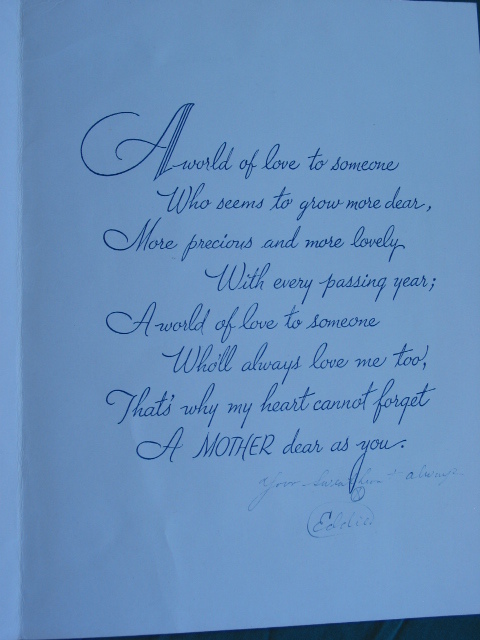 A world of love to someone
Who seems to grow more dear,
More precious and more lovely
With every passing year;
A world of love to someone
Who'll always love me too,
That's why my heart cannot forget
A MOTHER dear as you.
Your always
Eddie